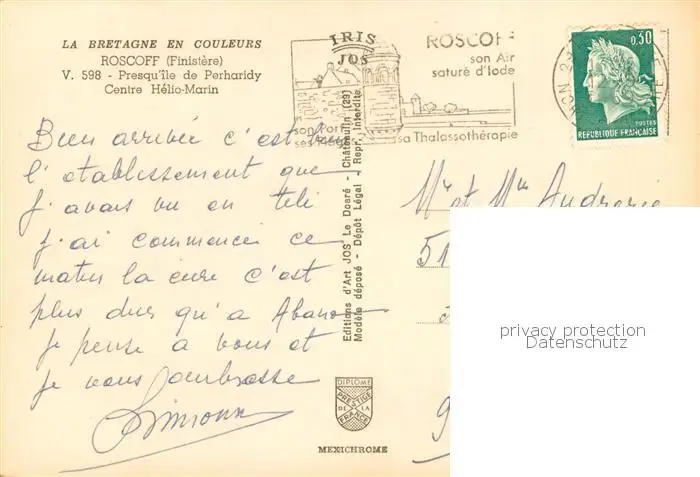 LA BRETAGNE EN COULEURS
ROSCOFF (Finistère)
V. 598 - Presqu'île de Perharidy
Centre Hélio-Marin
IRIS
JOS
ROSCOFF
son Air
saturé d'Iode
son Port
ses
sa Thalassothérapie
0,30
POSTES
REPUBLIQUE FRANÇAISE
Bien arrivée c'est bien
l'etablissement que
j'avais vu en télé
j'ai commencée ce
matin la cure c'est
plus dur qu'a Abano
je pense a vous et
je vous embrasse
Simone
Editions d'Art JOS Le Doaré - Châteaulin (29)
Modèle déposé - Dépôt Légal - Repr. Interdite
Mr et Mme
51
9
DIPLOME
PRESTIGE
DE LA
FRANCE
MEXICHROME
privacy protection
Datenschutz